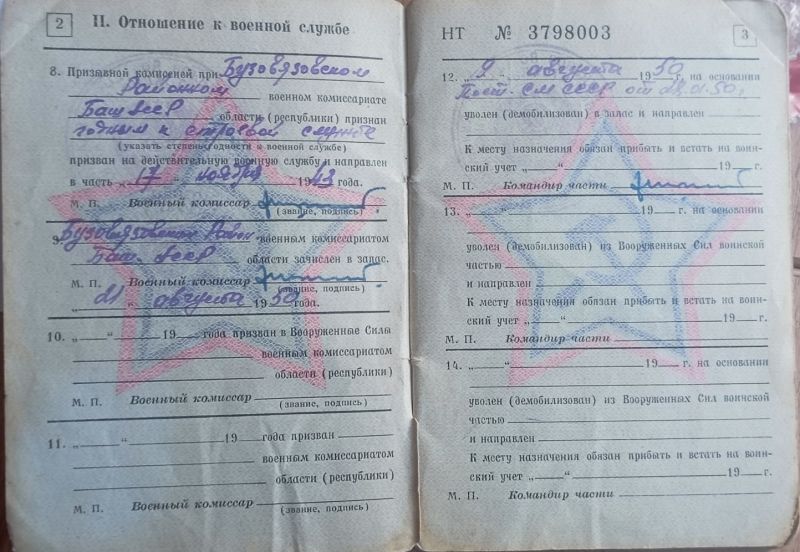 2
II. Отношение к военной службе
8. Призывной комиссией при Бузовьязовском
Районном военном комиссариате
Баш АССР области (республики) признан
годным к строевой службе
(указать степень годности к военной службе)
призван на действительную военную службу и направлен
в часть „17“ ноября 1943 года.
М. П. Военный комиссар
(звание, подпись)
9. Бузовьязовским Район военным комиссариатом
Баш. АССР области зачислен в запас.
М. П. Военный комиссар
(звание, подпись)
21 августа 1950 года.
10. „ “ 19 года призван в Вооруженные Силы
военным комиссариатом
области (республики)
М. П. Военный комиссар
(звание, подпись)
11. „ “ 19 года призван
военным комиссариатом
области (республики)
М. П. Военный комиссар
(звание, подпись)
НТ № 3798003
3
12. „9 августа 1950 г. на основании
Пост. СМ СССР от
уволен (демобилизован) в запас и направлен
К месту назначения обязан прибыть и встать на воин-
ский учет „ “ 19 г.
М. П. Командир части
13. „ “ 19 г. на основании
уволен (демобилизован) из Вооруженных Сил воинской
частью
и направлен
К месту назначения обязан прибыть и встать на воин-
ский учет „ “ 19 г.
М. П. Командир части
14. „ “ 19 г. на основании
уволен (демобилизован) из Вооруженных Сил воинской
частью
и направлен
К месту назначения обязан прибыть и встать на воин-
ский учет „ “ 19 г.
М. П. Командир части